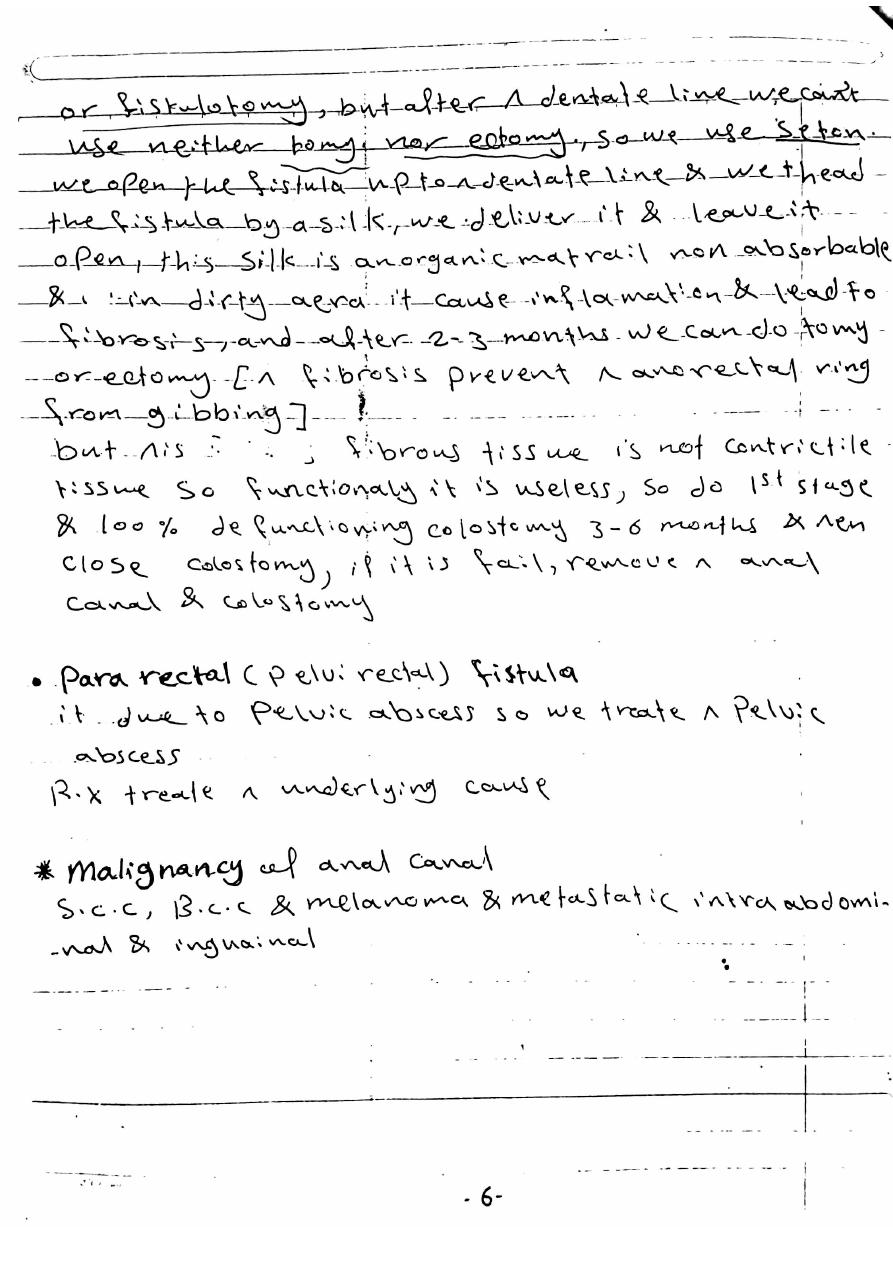 or fistulotomy, but after ^ dentate line we can't
use neither tomy, nor ectomy, so we use Seton.
we open the fistula up to ^ dentate line & we thead
the fistula by a silk, we deliver it & leave it
open, this silk is anorganic matrail non absorbable
& in dirty aera it cause inflamation & lead to
fibrosis, and after 2-3 months we can do tomy
or ectomy [^ fibrosis prevent ^ anorectal ring
from gibbing]
but ^is ; fibrous tissue is not contrictile
tissue so functionaly it is useless, so do 1st stage
& 100% defunctioning colostomy 3-6 months & ^en
close colostomy, if it is fail, remove ^ anal
canal & colostomy
• Para rectal (Pelvi rectal) fistula
it due to Pelvic abscess so we treate ^ Pelvic
abscess
R.x treate ^ underlying cause
* Malignancy of anal canal
S.c.c, B.c.c & melanoma & metastatic intra abdomi-
-nal & inguainal
- 6 -